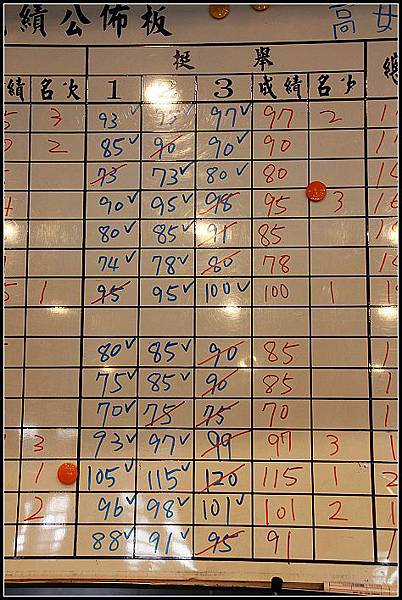 績公佈板 高女
挺 舉 總
績 名次 1 2 3 成績 名次
5 3 93✓ 97✓ 97 2 1
2 2 85✓ 90 90✓ 90 1
73 73✓ 80✓ 80 1
4 90✓ 95✓ 98 95 3 1
80 85✓ 91 85
74✓ 78✓ 80 78 1
5 1 95 95✓ 100✓ 100 1 1
80✓ 85✓ 90 85 1
75✓ 85✓ 90 85 1
70✓ 75 75 70 1
3 93✓ 97✓ 99 97 3 1
1 105✓ 115✓ 120 115 1 2
2 96✓ 98✓ 101✓ 101 2 1
88✓ 91✓ 95 91 1